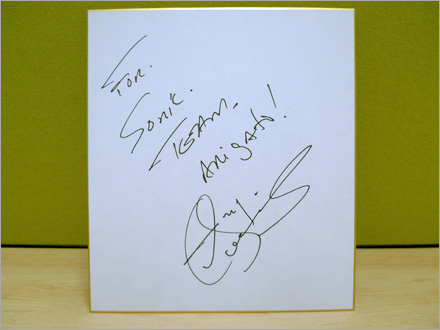 For.
Sonic.
Team.
Arigato!